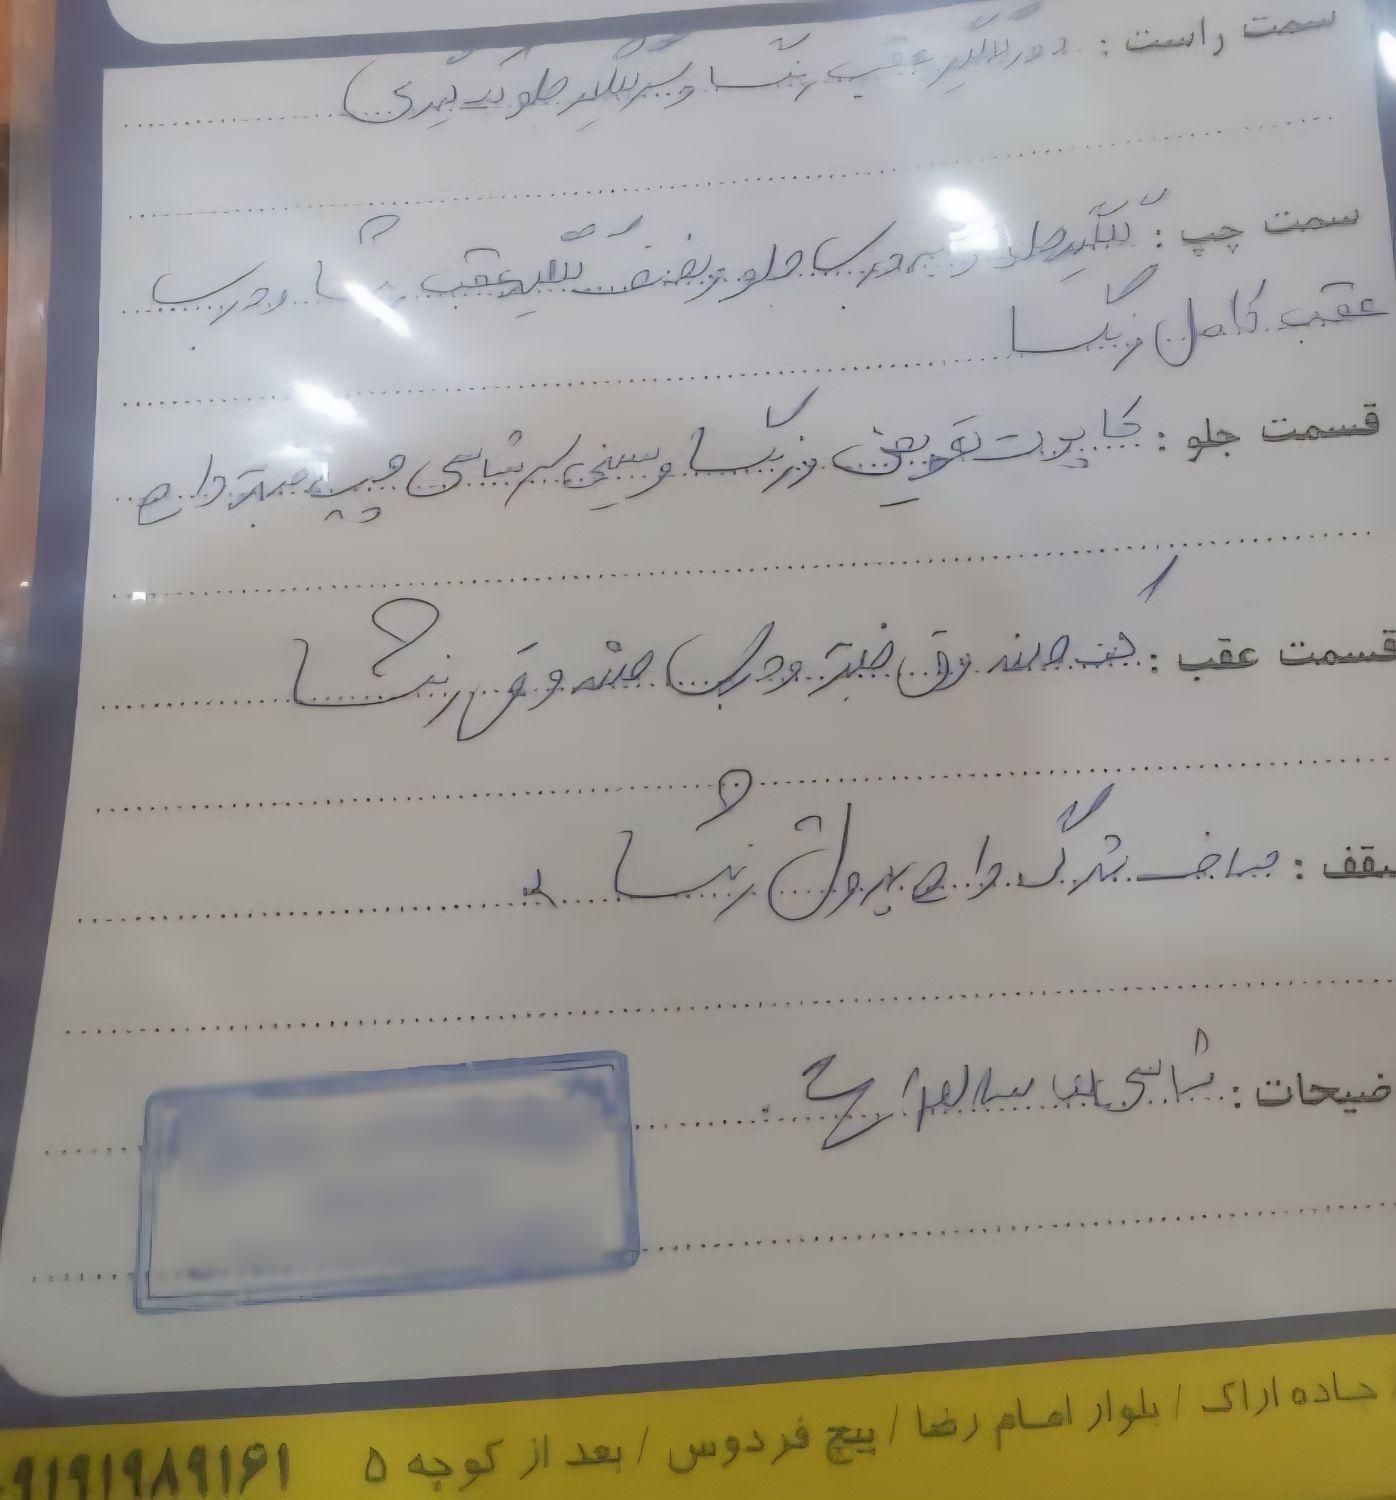 سمت راست : دور گلگیر عقب رنگ و سر گلگیر جلو لکه گیری
سمت چپ : گلگیر جلو و درب جلو و نصف گلگیر عقب رنگ و درب
عقب کامل رنگ
قسمت جلو : کاپوت تعویض و رنگ و سینی سر شاسی چپ ضربه دارد
قسمت عقب : کف صندوق ضربه و درب صندوق رنگ
سقف : صاف تگرگ دارد بدون رنگ
ضیحات : شاسی ها سالم
جاده اراک / بلوار امام رضا / پیچ فردوس / بعد از کوچه ۵ ۹۱۹۱۹۸۹۱۶۱